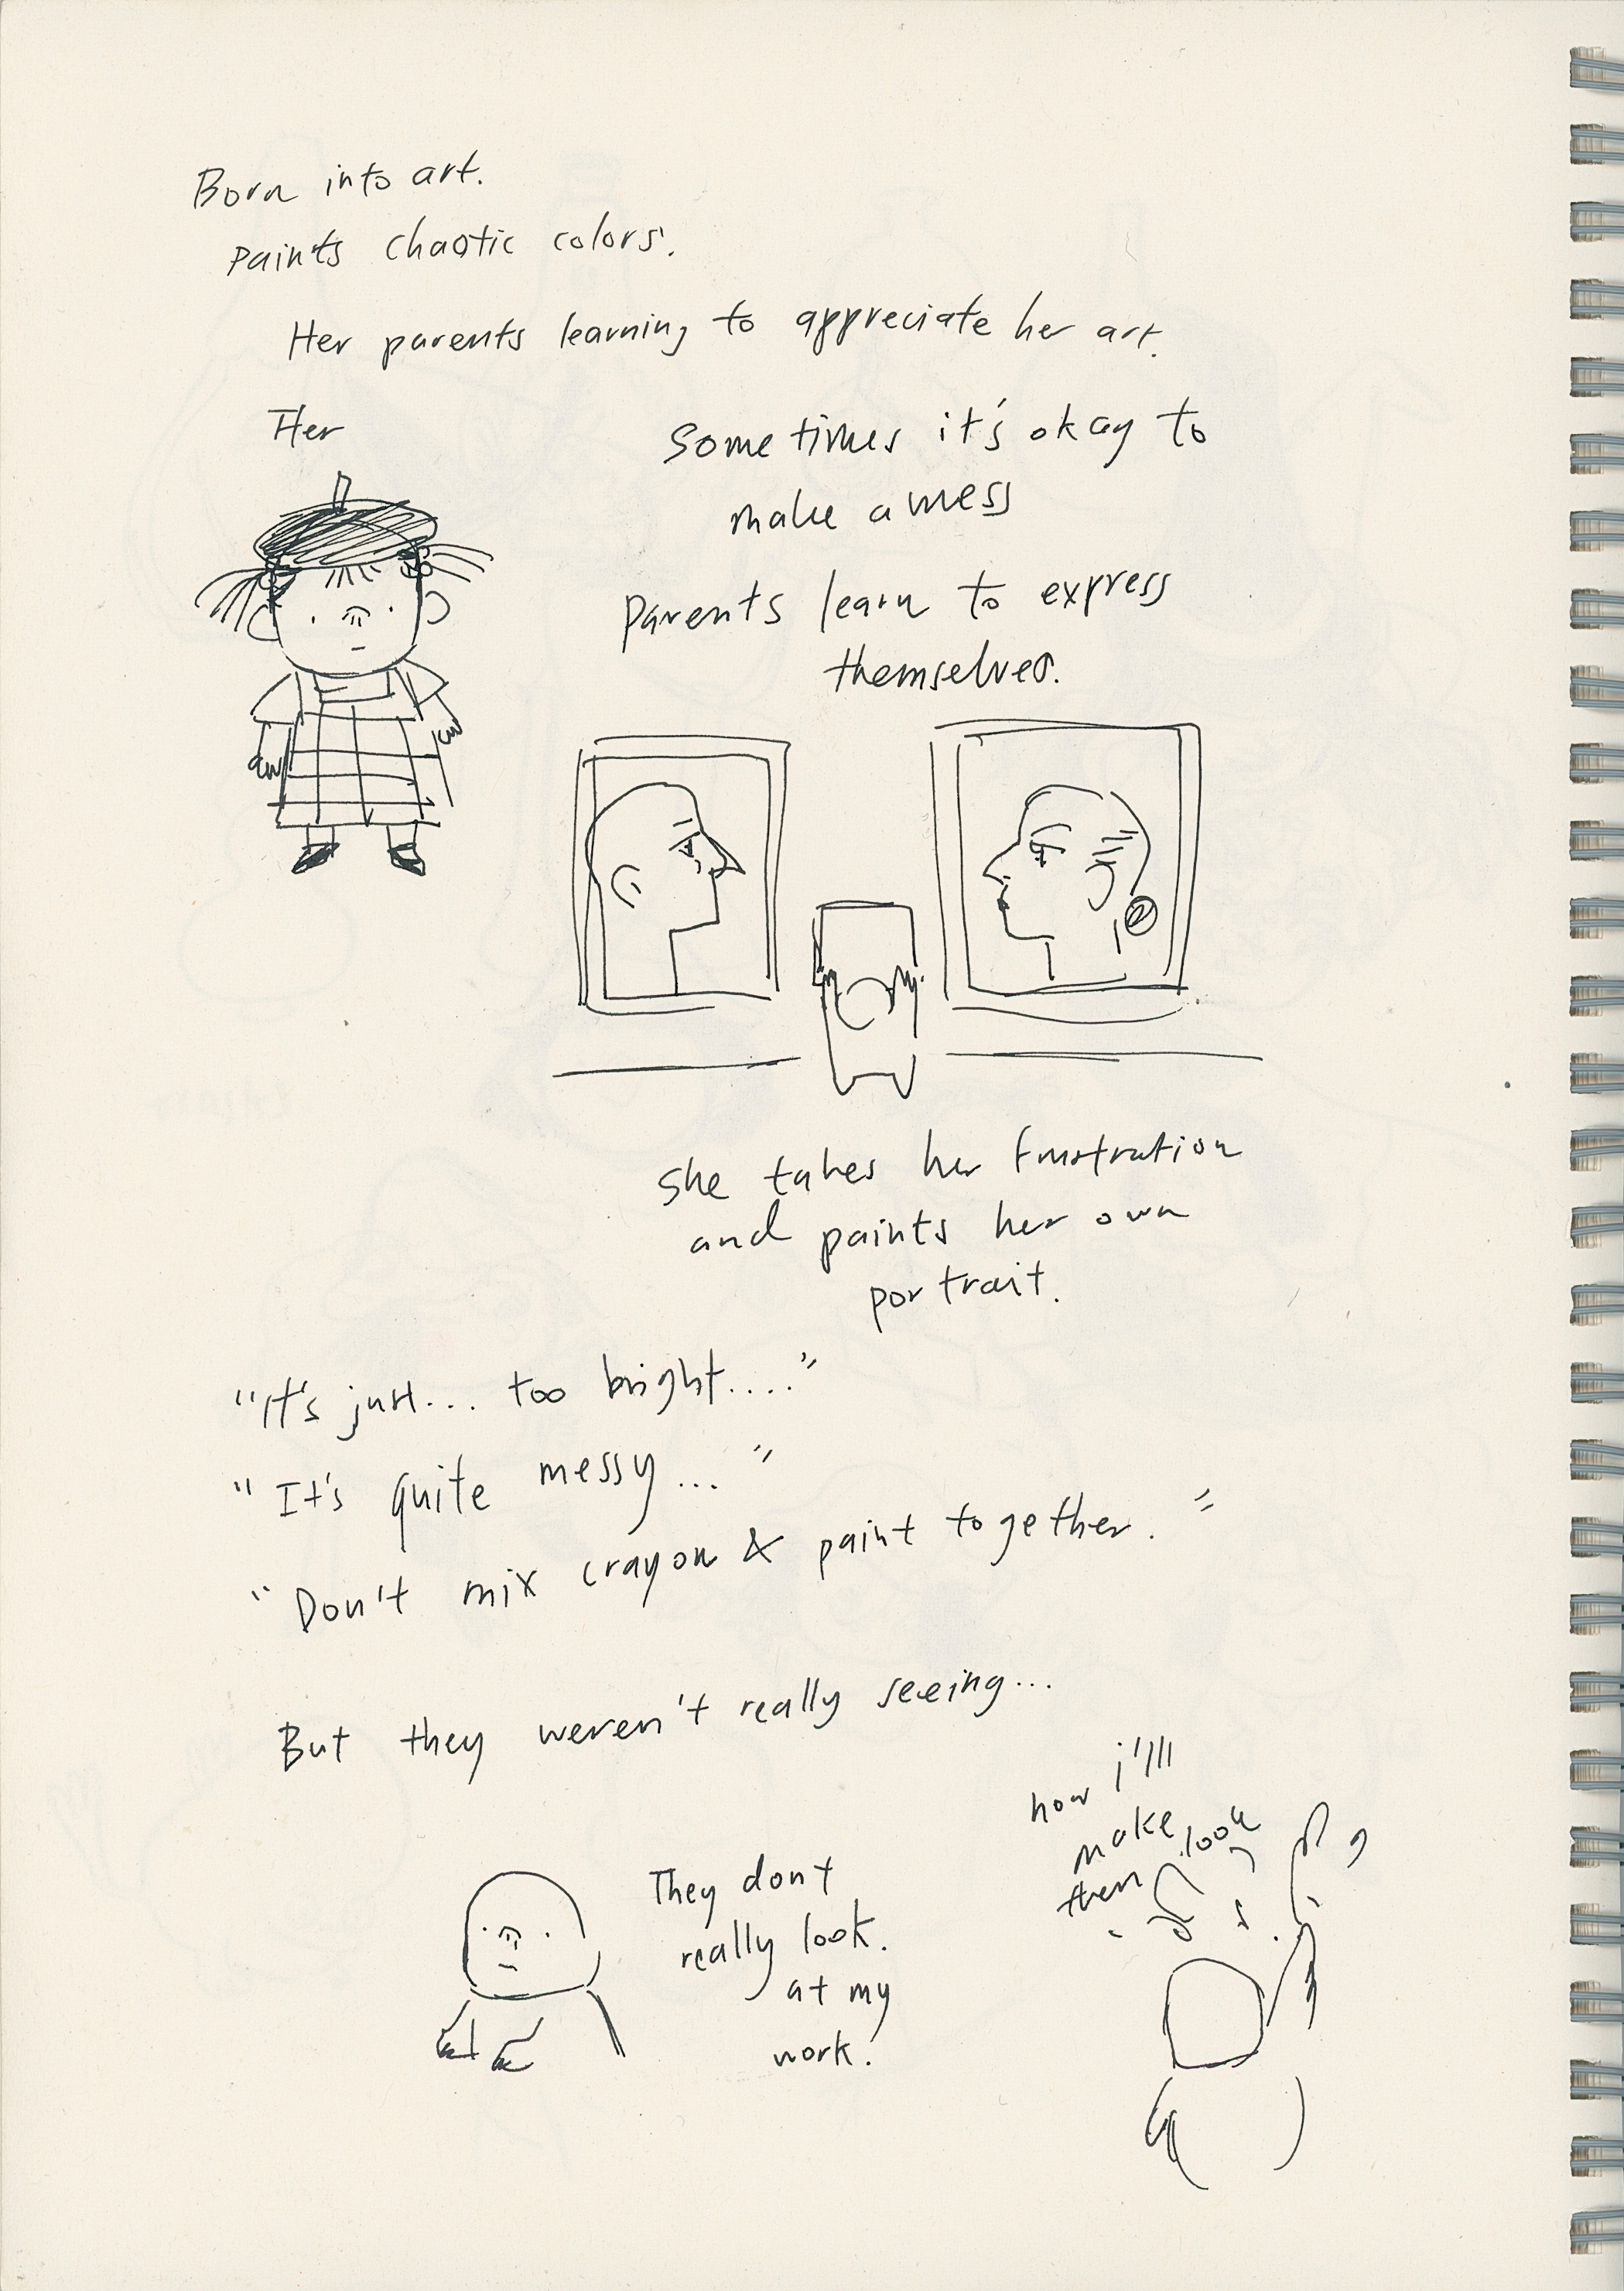 Born into art.
Paints chaotic colors.
Her parents learning to appreciate her art.
Her
Sometimes it's okay to
make a mess
Parents learn to express
themselves.
She takes her frustration
and paints her own
portrait.
"It's just... too bright...."
"It's quite messy..."
"Don't mix crayon & paint together."
But they weren't really seeing...
They don't
really look.
at my
work!
how i'lll
make look
them